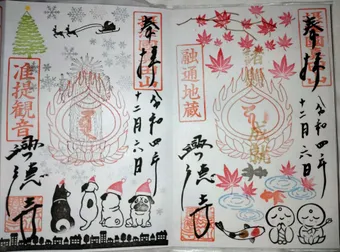 奉拝
令和四年
十二月六日
融通地蔵
諸
成就
興徳寺
奉拝
令和四年
十二月六日
准提観音
興徳寺